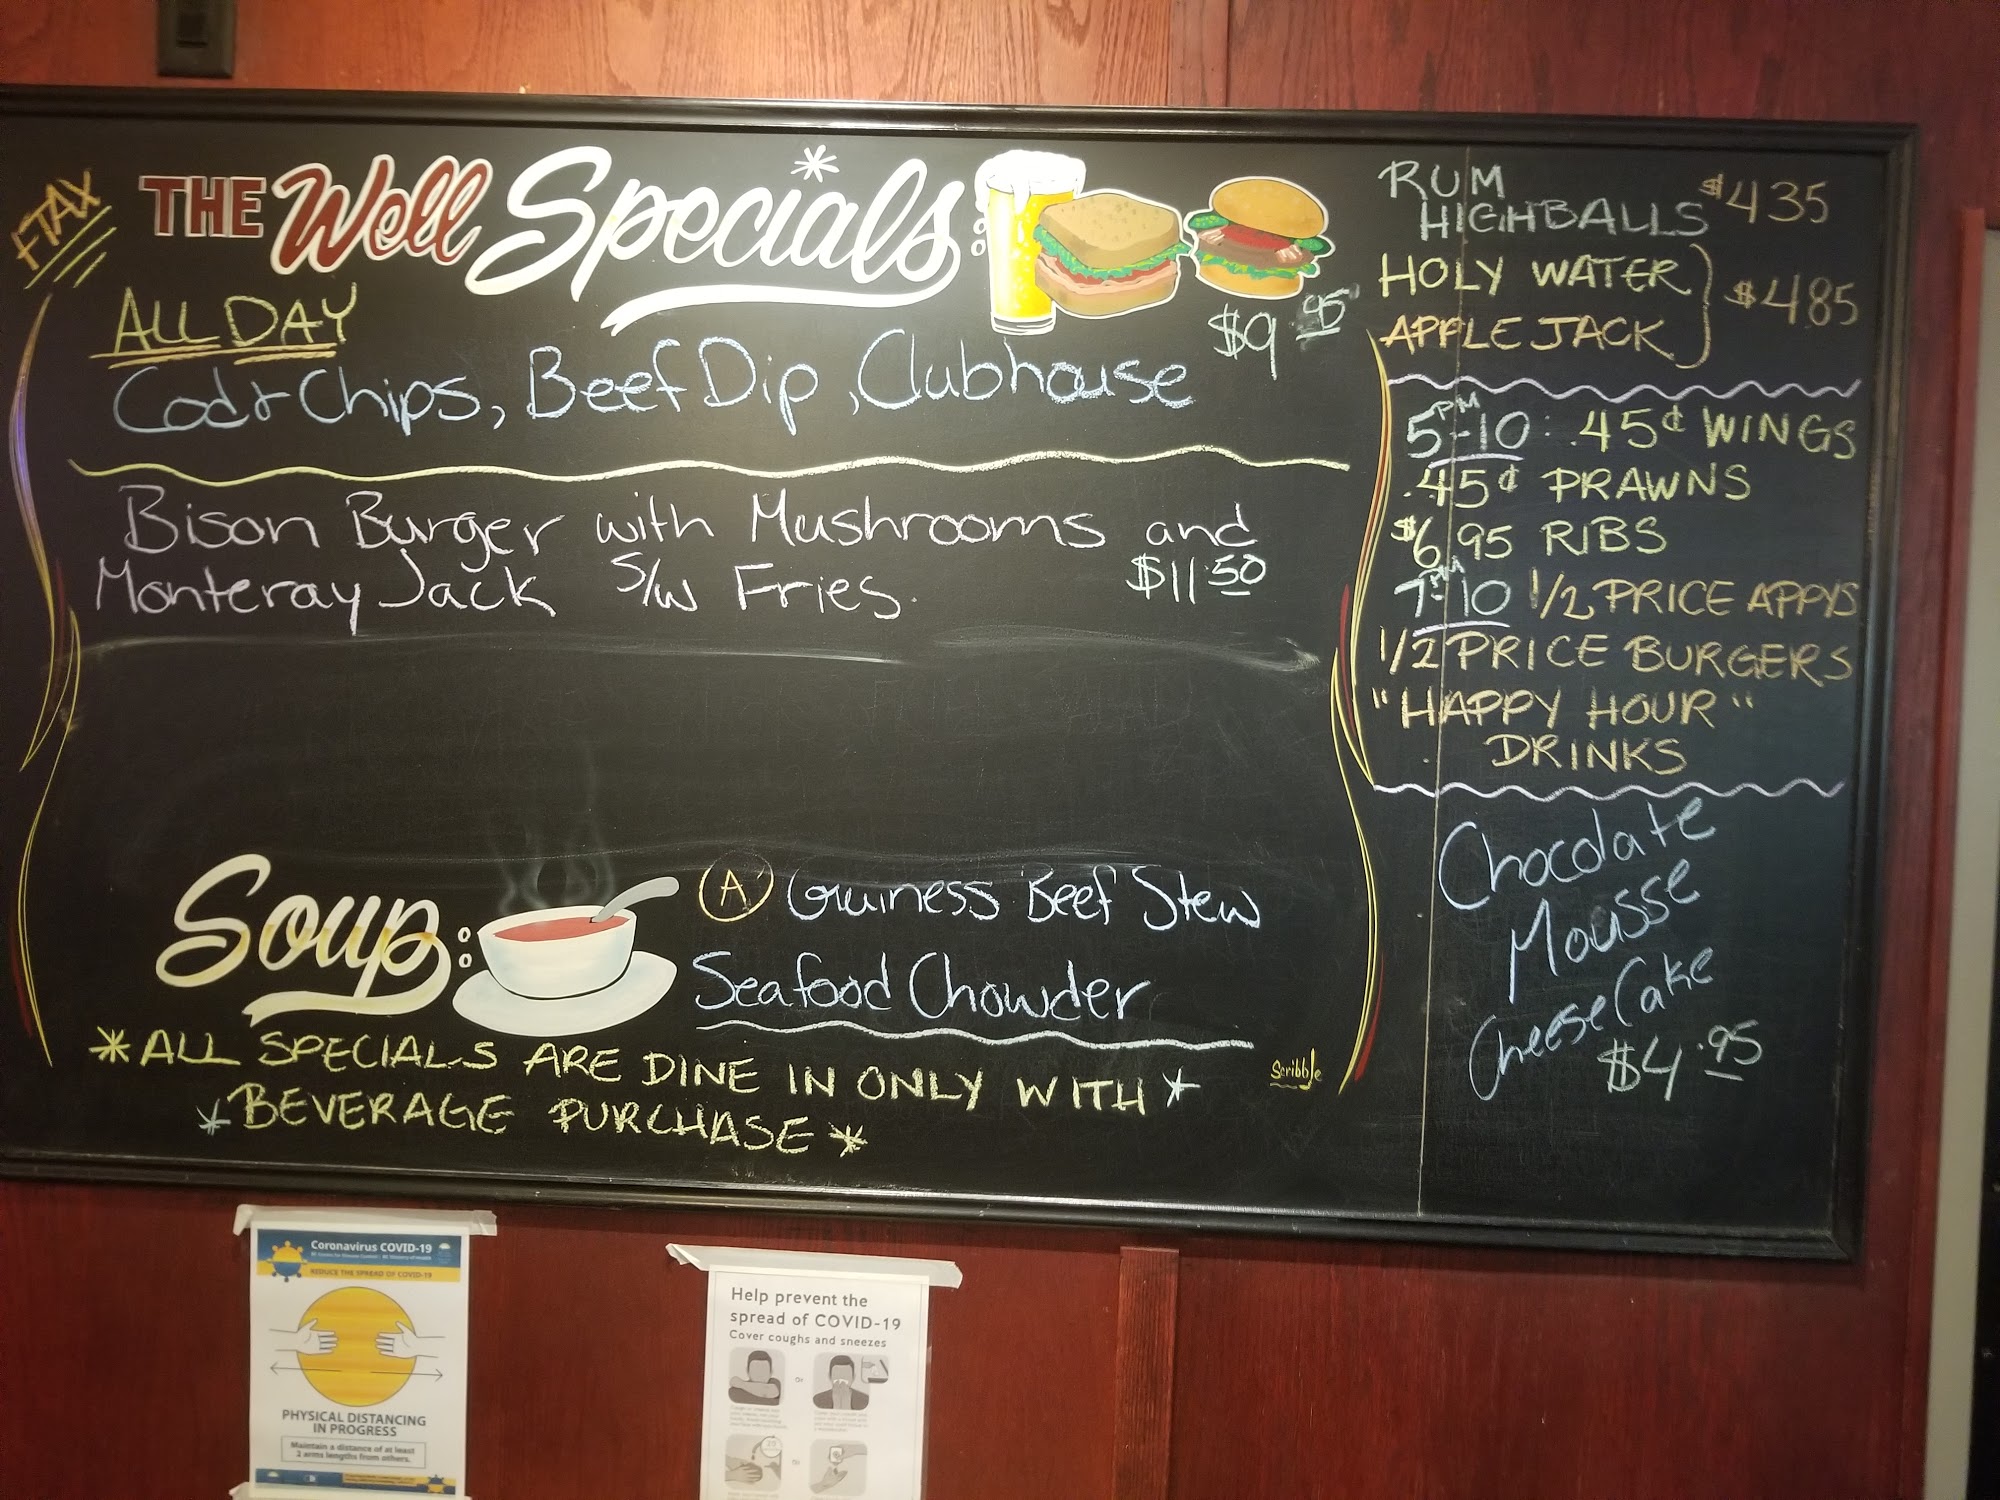 +TAX
THE Well Specials:
ALL DAY
$9.95
Cod + Chips, Beef Dip, Clubhouse
Bison Burger with Mushrooms and
Monteray Jack s/w Fries. $11.50
Soup:
A Guiness Beef Stew
Seafood Chowder
*ALL SPECIALS ARE DINE IN ONLY WITH*
*BEVERAGE PURCHASE*
Scribble
RUM
HIGHBALLS $4.35
HOLY WATER
APPLE JACK $4.85
5PM-10: .45¢ WINGS
.45¢ PRAWNS
$6.95 RIBS
7PM-10 1/2 PRICE APPYS
1/2 PRICE BURGERS
"HAPPY HOUR"
DRINKS
Chocolate
Mousse
CheeseCake
$4.95
Coronavirus COVID-19
REDUCE THE SPREAD OF COVID-19
PHYSICAL DISTANCING
IN PROGRESS
Maintain a distance of at least
2 arms lengths from others.
Help prevent the
spread of COVID-19
Cover coughs and sneezes
or
or